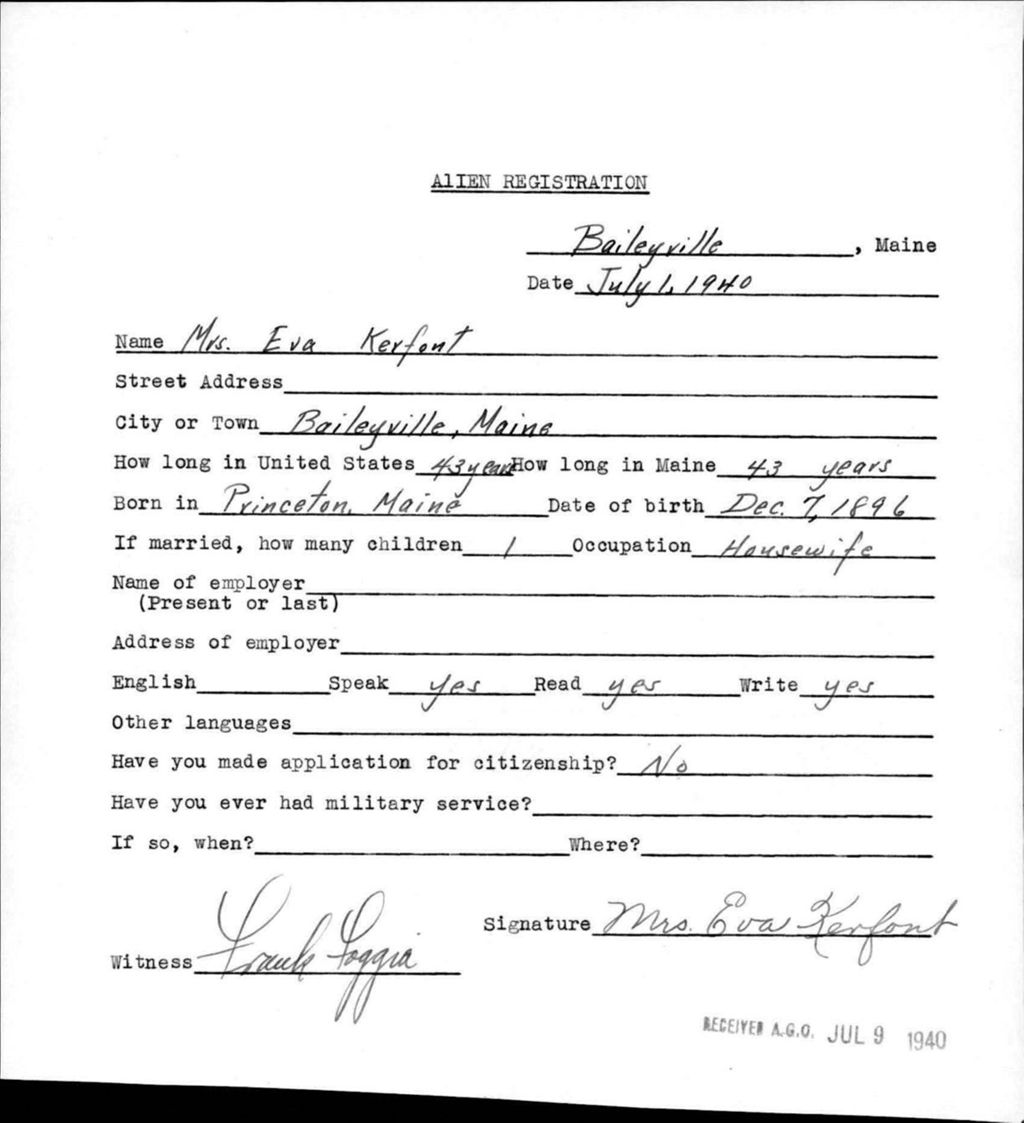 AlIEN REGISTRATION
Baileyville, Maine
Date July 1, 1940
Name Mrs. Eva Kerfont
Street Address
City or Town Baileyville, Maine
How long in United States 43 years How long in Maine 43 years
Born in Princeton, Maine Date of birth Dec. 7, 1896
If married, how many children 1 Occupation Housewife
Name of employer
(Present or last)
Address of employer
English Speak yes Read yes Write yes
Other languages
Have you made application for citizenship? No
Have you ever had military service?
If so, when? Where?
Signature Mrs. Eva Kerfont
Witness Frank Foggia
RECEIVED A.G.O. JUL 9 1940